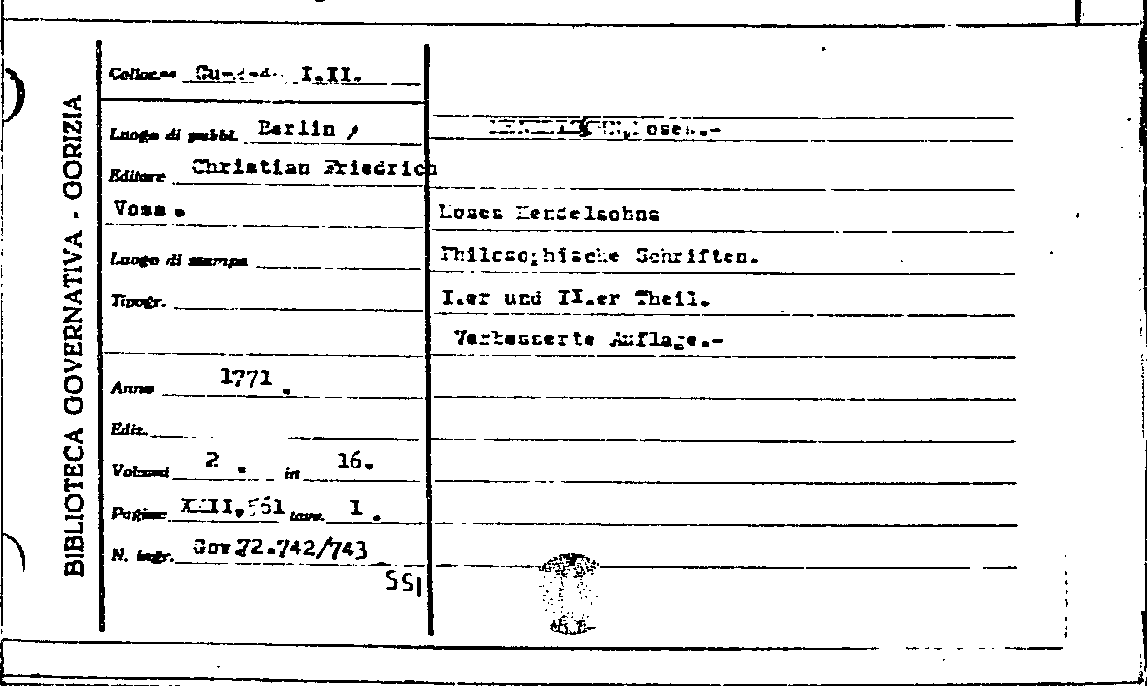 BIBLIOTECA GOVERNATIVA - GORIZIA
I.II.
Luogo di pubbl. Berlin ,
Editore Christian Friedrich
Voss .
Luogo di stampa
Tipogr.
Anno 1771 .
Ediz.
Volumi 2 . in 16.
Pagine 561 tav. I .
N. ingr. Gov 72.742/743
551
Moses Mendelsohns
Philosophische Schriften.
I.er und II.er Theil.
Verbesserte Auflage.-